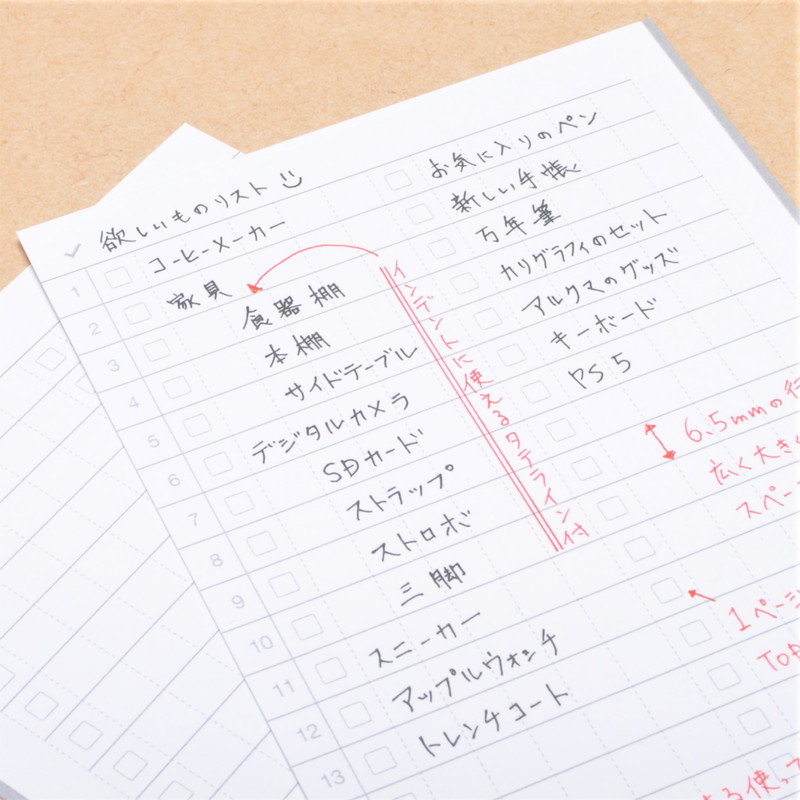 欲しいものリスト
1
コーヒーメーカー
2
家具
3
食器棚
4
本棚
5
サイドテーブル
6
デジタルカメラ
7
SDカード
8
ストラップ
9
ストロボ
10
三脚
11
スニーカー
12
アップルウォッチ
13
トレンチコート
お気に入りのペン
新しい手帳
万年筆
カリグラフィのセット
アルクマのグッズ
キーボード
PS5
インデントに使えるタテライン付
6.5mmの行
広く大きく
スペー
1ページ
TOP
る使っ